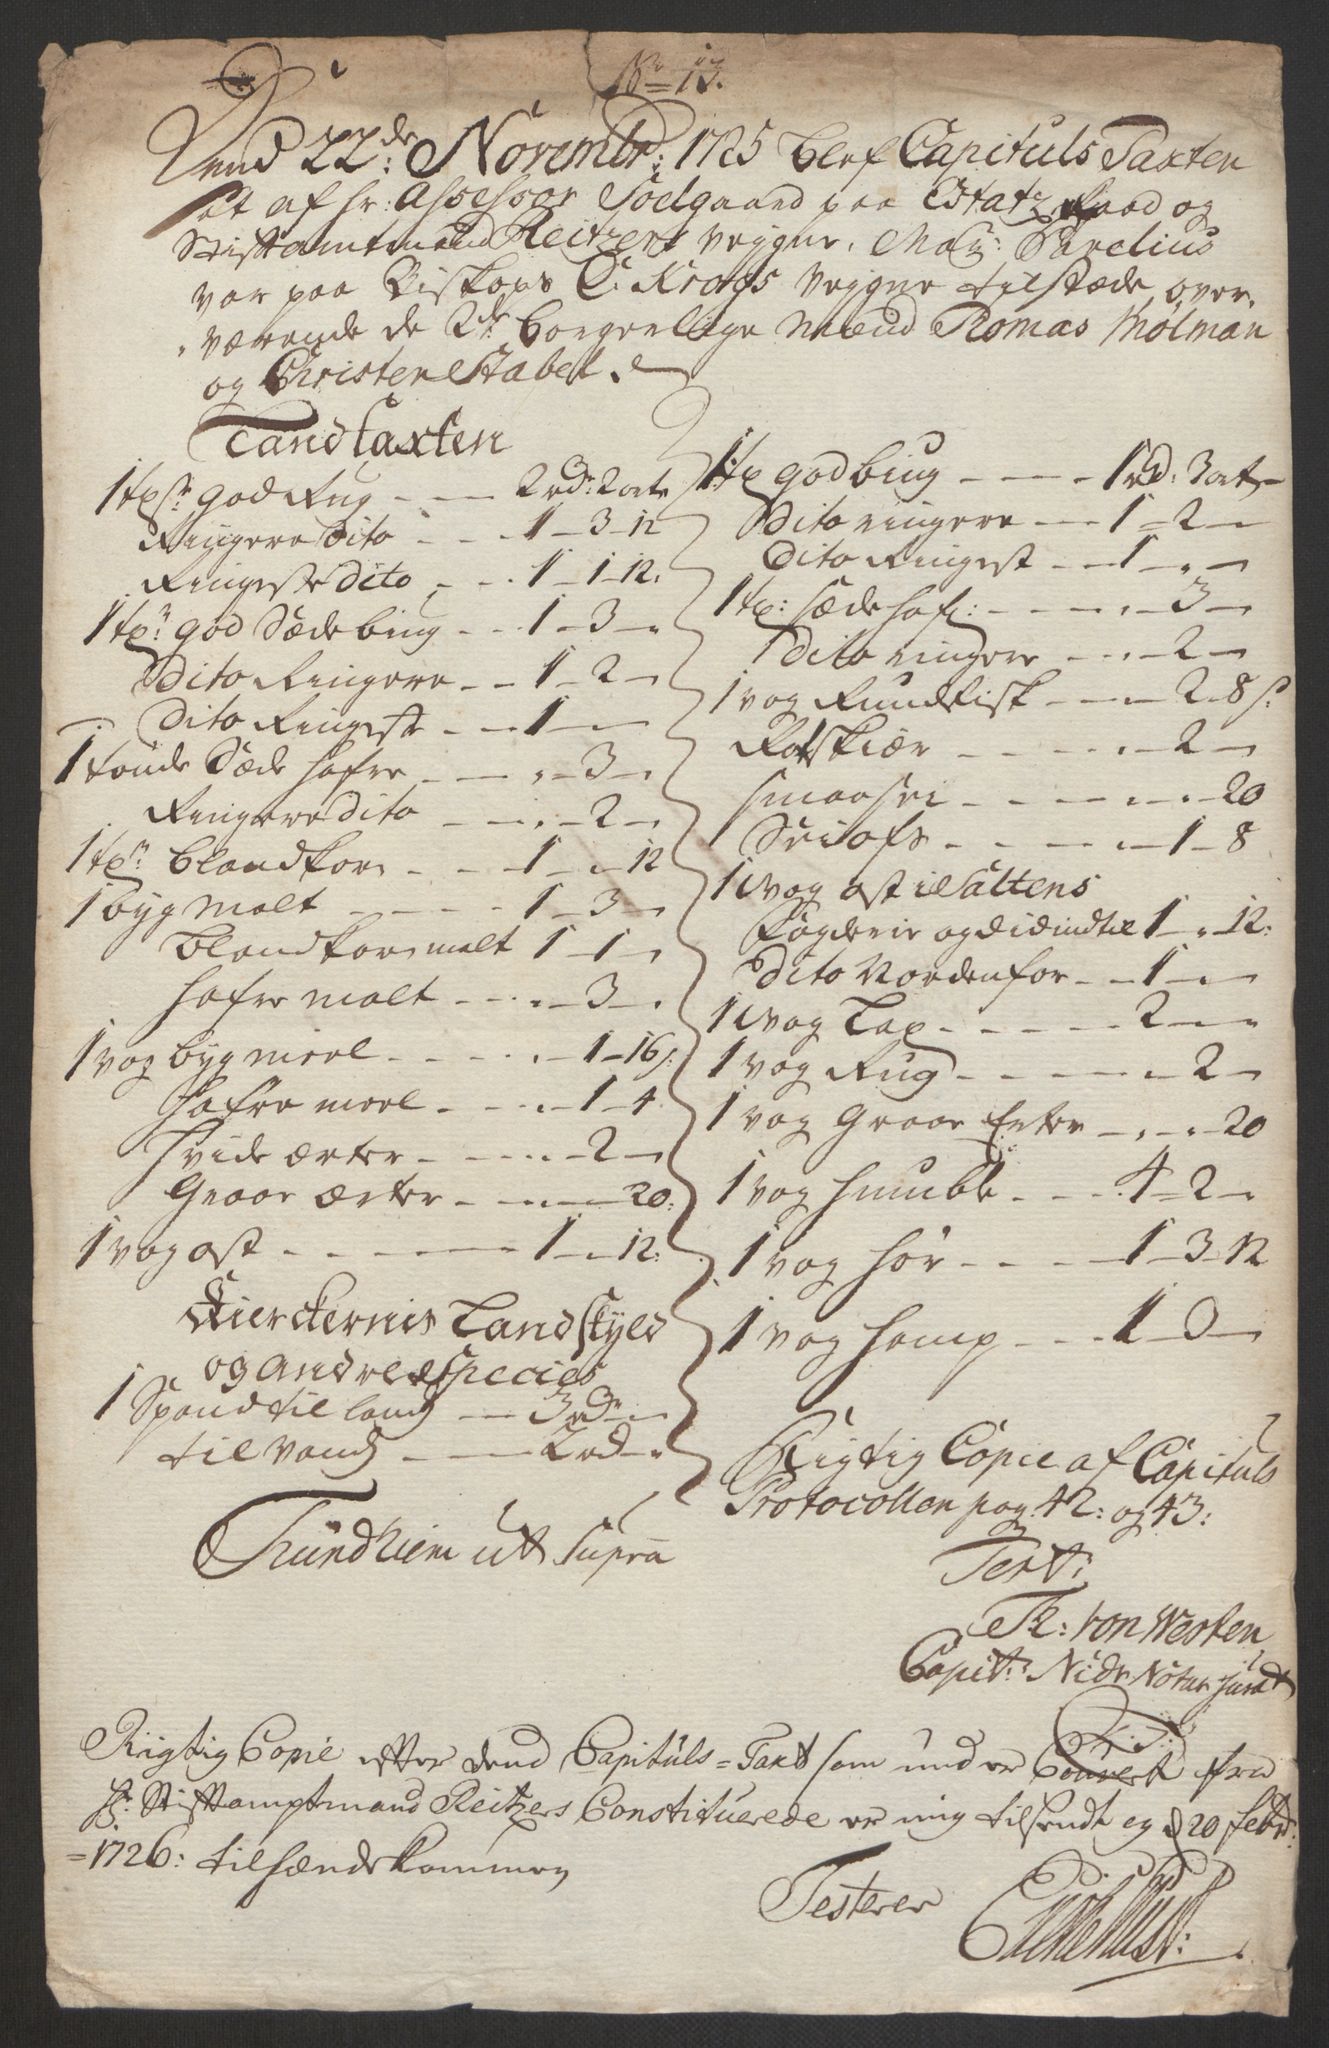 No 13.
Dend 22de: Novembr: 1725 blef Capituls Taxten
sat af hr: Assessor Sodgaard paa Etatz Raad og
Stiftamtmand Reitzers vegne, Mag: Parelius
var paa Biskops Krogs vegne tilstæde, over-
værende de 2de borgerlige mænd Thomas Mølman
og Christen Stabel.
Landtaxten
1 tø: god Rug - - 2 rdr: 2 ort
Ringere dito - - 1 - 3 - 12
Ringeste dito - - 1 - 1 - 12.
1 tø: god Sæde biug - - 1 - 3 -
Dito Ringere - - 1 - 2 -
Dito Ringeste - - 1 -
1 tønde Sæde hafre - - - 3 -
Ringere dito - - - 2 -
1 tø: blandkorn - - 1 - - 12
1 byg malt - - - 1 - 3 -
blandkorn malt 1 - 1 -
hafre malt - - - 3 -
1 vog byg meel - - - 1 - 16 s:
hafre meel - - - 1 - 4
hvide ærter - - - 2 -
Graae ærter - - - 20:
1 vog ost - - - 1 - - 12:
Kierckernis Landskyld
og andre species
1 Spand til land - 3 rdr -
til vand - - 2 rd -
Trundhiem ut supra
1 tø god biug - - - 1 rd: 3 ort -
Dito ringere - - 1 - 2 -
Dito Ringest - - 1 - -
1 tø: sæde hafr: - - - 3 -
Dito ringere - - - 2 -
1 vog Rundfisk - - - 2 - 8 s:
Rotskiær - - - 2 -
smaa sei - - - 20
Sei ofs - - - 1 - 8
1 vog ost i Saltens
fogderie og did indtil 1 - - 12:
Dito Nordenfor - - 1 -
1 vog Lax - - - 2 -
1 vog Rug - - - 2 -
1 vog Graae Erter - - 20
1 vog humble - - 4 - 2 -
1 vog hør - - - 1 - 3 - 12
1 vog hamp - - - 1 - 3 -
Rigtig Copie af Capituls
Protocollen pag: 42: og 43:
Test:
Th: von Westen
Capit: Nidr Notar: Jurat
Rigtig Copie efter dend Capituls-Taxt som under Couvert fra
Hr. Stiftamptmand Reitzers Constituerede er mig tilsendt og d 20 febr:
1726: tilhænde kommen
Testerer